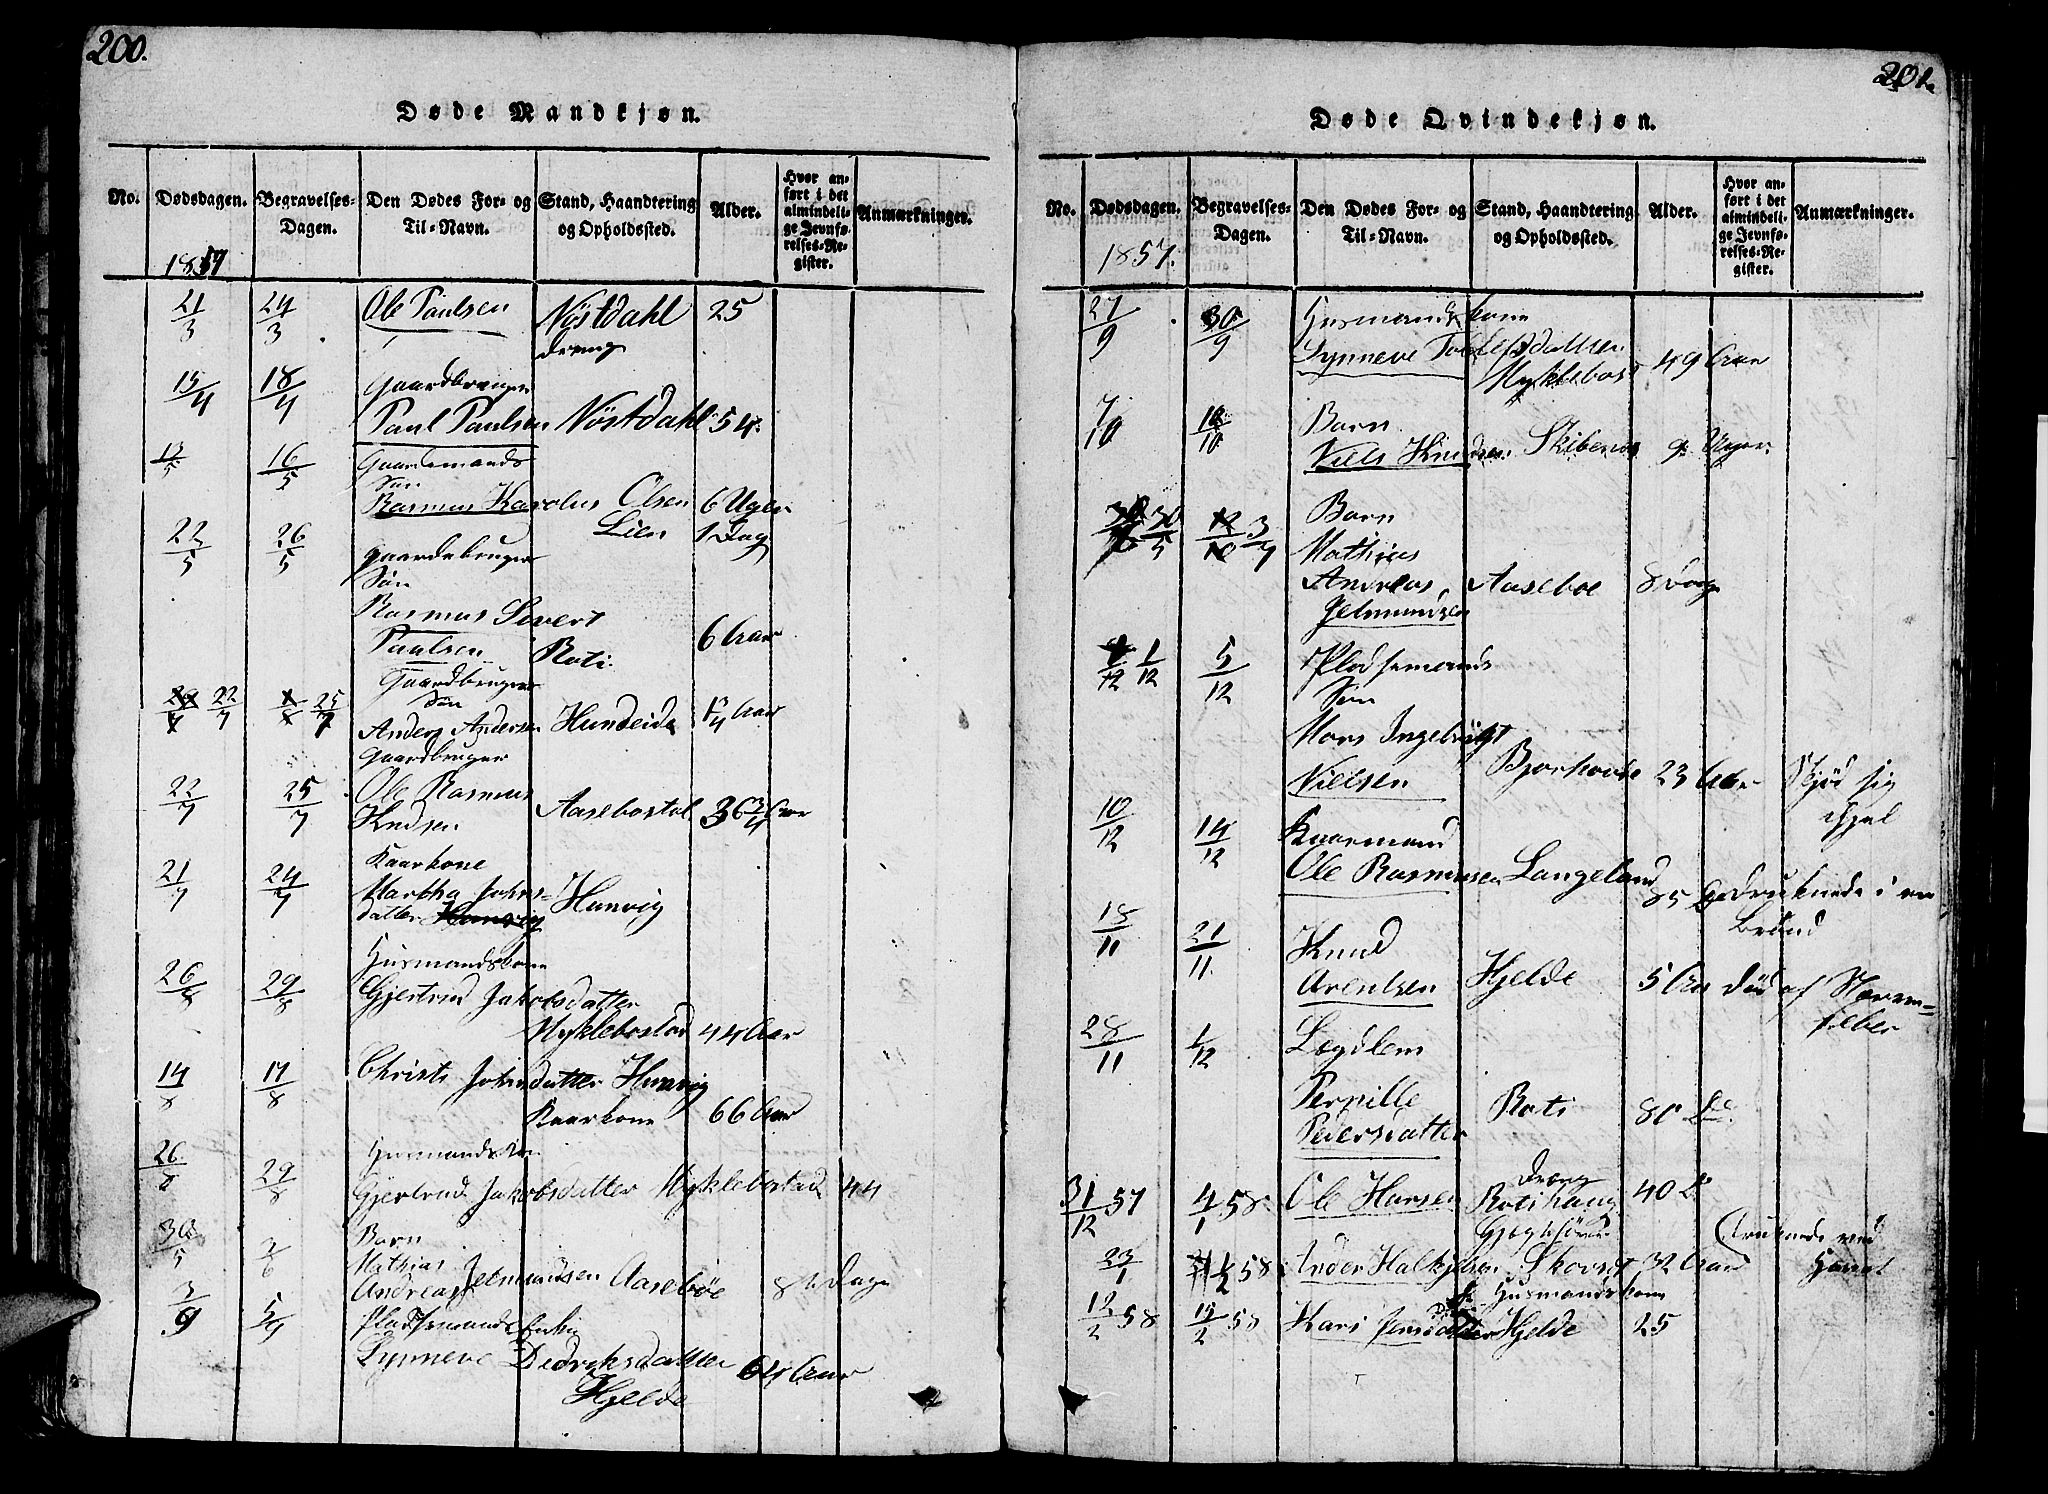 200.
Døde Mandkjøn.
No. Dødsdagen. Begravelses-Dagen. Den Dødes For- og Til-Navn. Stand, Haandtering og Opholdssted. Alder. Hvor anført i det almindelige Jevnførelses-Register. Anmærkninger.
1857
21/3 24/3 Ole Paulsen Nöstdahl 25
dreng
15/4 18/4 Gaardbruger
Paul Paulsen Nöstdahl 54.
16/5 Gaardmands
Søn
Rasmus Karolus Olsen 6 Uger
Lien 1 Dag
22/5 26/5 gaardbruger
Søn
Rasmus Sivert
Paulsen Roti. 6 Aar
Gaardbruger
Søn
22/7 25/7 Anders Andersen Hundeide Aar
gaardbruger
22/7 25/7 Ole Rasmus
Kndsen Aasebostøl 36 3/4 Aar
Kaarkone
21/7 24/7 Martha Johns-
datter Hunvig Hunvig
Husmandskone
26/8 29/8 Gjertrud Jakobsdatter
Myklebostad 44 Aar
14/8 17/8 Christi Johnsdatter Hunvig
Kaarkone 66 Aar
Husmandskone
26/8 29/8 Gjertrud Jakobsdatter Myklebostad 44
30/5 Barn
Mathias
Andreas Jetmundsen Aaseböe 8 Dage
3/9 5/9 Pladsemands Enke
Synneve Dedriksdatter 64 Aar
Hjelde
201.
Døde Qvindekjøn.
No. Dødsdagen. Begravelses-Dagen. Den Dødes For- og Til-Navn. Stand, Haandtering og Opholdssted. Alder. Hvor anført i det almindelige Jevnførelses-Register. Anmærkninger.
1857.
27/9 30/9 Husmandskone
Synneve
Myklebost 49 Aar
7/10 10/10 Barn
Niels Knudsen Skibenes 9 Uger.
30/5 Barn
Mathias
Andreas Aaseboe 8 Dage
Jetmundsen
1/12 5/12 Pladsemands
Søn
Mons Ingebrigt
Nielsen Bjorhovde 23 Aar Skjød sig
ihjel
10/12 14/12 Kaarmand
Ole Rasmusen Langeland 85 druknede i en
Brönd
18/11 21/11 Knud
Arentsen Hjelde 5 Aar Död af Nerve-
feber
28/11 1/12 Lægdlem
Pernille
Pedersdatter Roti 80 Do
Dreng
31/12 57 4/1 58. Ole Hansen Rotihaug 40 Do
23/1 1/2 58 Anders Skovset 32 Aar druknede ved
Husmandskone
12/2 58 15/2 58 Kari Jensdatter Hjelde 25